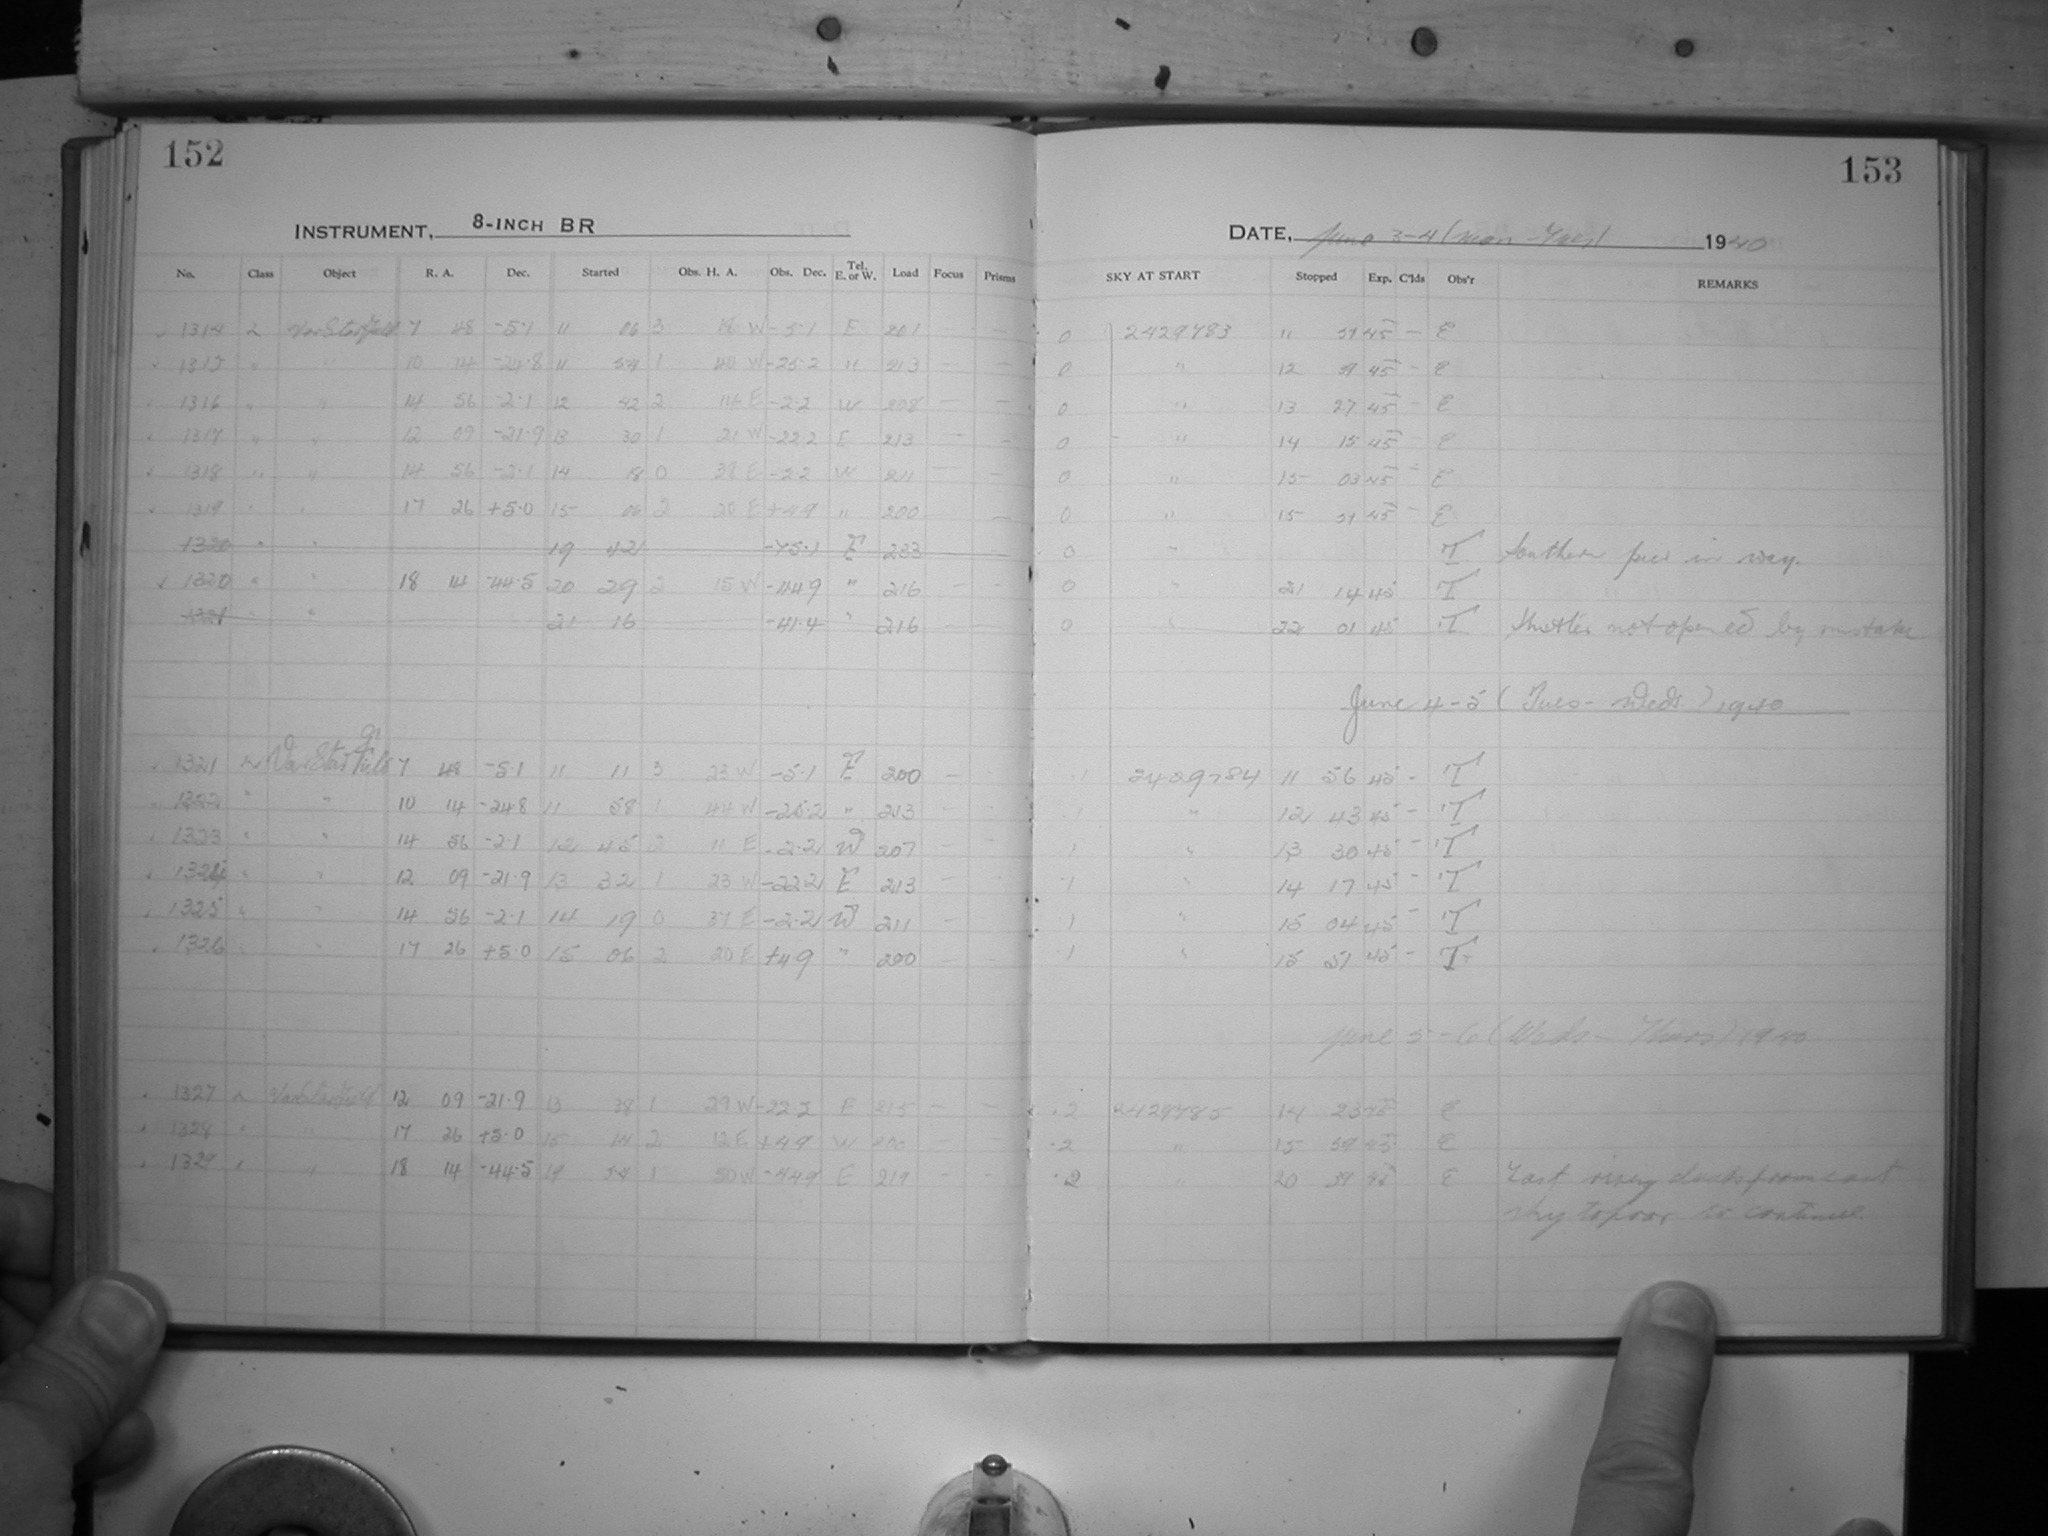 152
153
INSTRUMENT, 8-INCH BR
DATE, June 3-4 (Mon - Tues) 1940
No. Class Object R. A. Dec. Started Obs. H. A. Obs. Dec. Tel. E. or W. Load Focus Prisms SKY AT START Stopped Exp. C'lds Obs'r REMARKS
1314 2 Var Star Field 7 48 -5.1 11 06 3 18 W -5.1 E 201 - - 0 2429783 11 51 45 - E
1315 " " 10 14 -24.8 11 54 1 40 W -25.2 " 213 - - 0 " 12 39 45 - E
1316 " " 14 56 -2.1 12 42 2 14 E -2.2 W 208 - - 0 " 13 27 45 - E
1317 " " 12 09 -21.9 13 30 1 21 W -22.2 E 213 - - 0 " 14 15 45 - E
1318 " " 14 56 -2.1 14 18 0 38 E -2.2 W 211 - - 0 " 15 03 45 - E
1319 " " 17 26 +5.0 15 06 2 20 E +4.9 " 200 - 0 " 15 51 45 - E
1320 " " 19 42 -75.1 E 233 - - 0 " T Southern pier in way.
1320 " " 18 14 -44.5 20 29 2 15 W -44.9 " 216 - - 0 " 21 14 45 T
1321 " " 21 16 -41.4 " 216 - - 0 " 22 01 45 T Shutter not opened by mistake
June 4-5 (Tues - Weds.) 1940
1321 2 Var Star Field 7 48 -5.1 11 11 3 23 W -5.1 E 200 - - .1 2429784 11 56 45 - T
1322 " " 10 14 -24.8 11 58 1 44 W -25.2 " 213 - - .1 " 12 43 45 - T
1323 " " 14 56 -2.1 12 45 2 11 E -2.2 W 207 - - .1 " 13 30 45 - T
1324 " " 12 09 -21.9 13 32 1 23 W -22.2 E 213 - - .1 " 14 17 45 - T
1325 " " 14 56 -2.1 14 19 0 37 E -2.2 W 211 - - .1 " 15 04 45 - T
1326 " " 17 26 +5.0 15 06 2 20 E +4.9 " 200 - - .1 " 15 51 45 - T
June 5-6 (Weds - Thurs) 1940
1327 2 Var Star Field 12 09 -21.9 13 38 1 29 W -22.2 E 215 - - .2 2429785 14 23 45 E
1328 " " 17 26 +5.0 15 14 2 12 E +4.9 W 200 - - .2 " 15 59 45 E
1329 " " 18 14 -44.5 19 54 1 50 W -44.9 E 219 - - .2 " 20 39 45 E Fast rising clouds from east
sky to poor to continue.